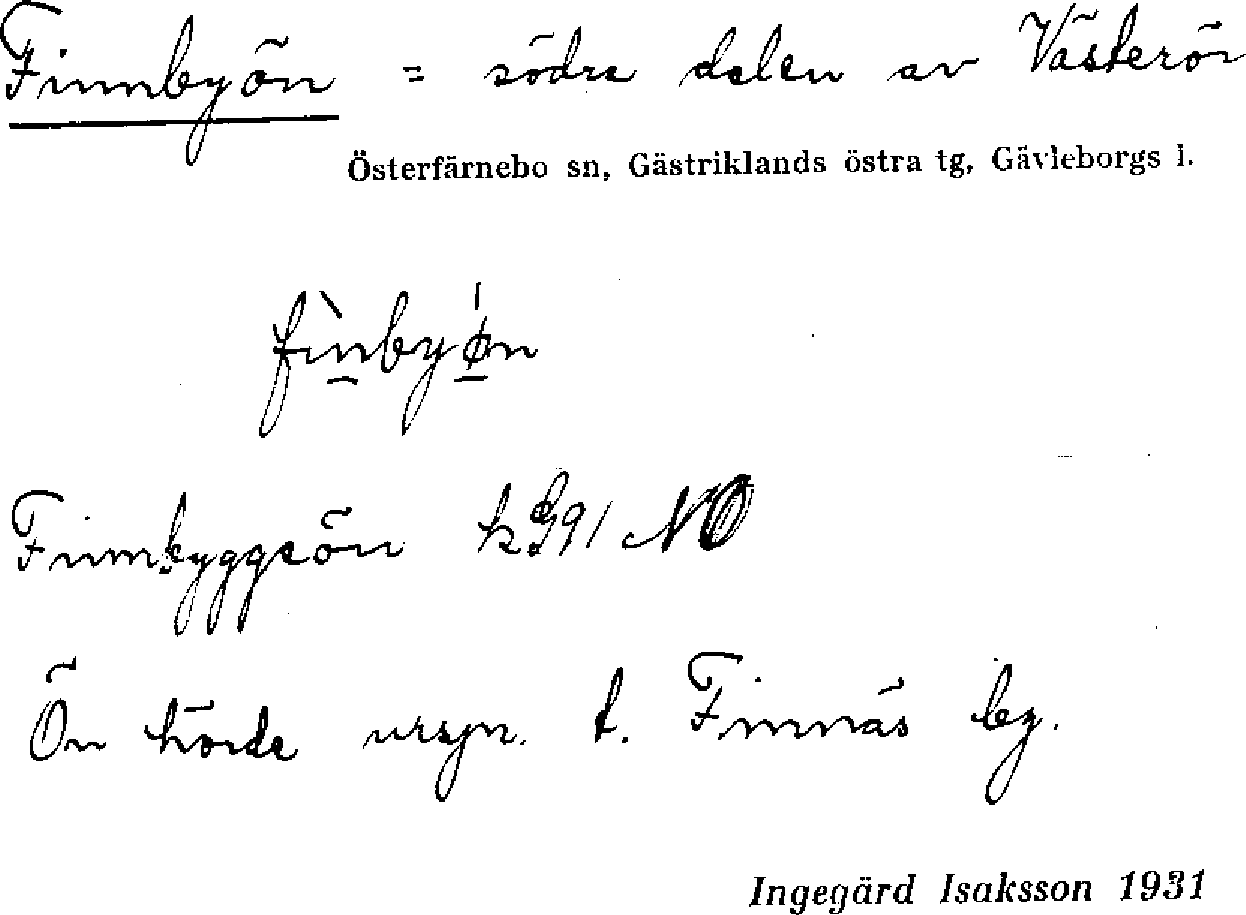 Finnbyön = södra delen av Västerön
Österfärnebo sn, Gästriklands östra tg, Gävleborgs l.
fìnbyǿn
Finnbyggeön k 991 NO
Ön hörde urspr. t. Finnäs by.
Ingegärd Isaksson 1931